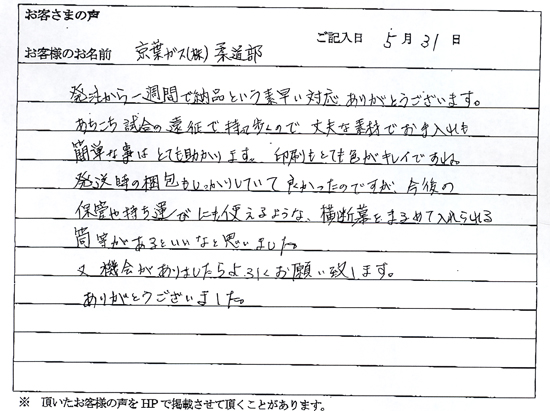 お客さまの声
ご記入日 5月31日
お客様のお名前 京葉ガス(株)柔道部
発注から一週間で納品という素早い対応ありがとうございます。
あちこち試合の遠征で持ち歩くので、丈夫な素材でお手入れも
簡単な事はとても助かります。印刷もとても色がキレイですね。
発送時の梱包もしっかりしていて良かったのですが、今後の
保管や持ち運びにも使えるような、横断幕をまるめて入れられる
筒等があるといいなと思いました。
又機会がありましたらよろしくお願い致します。
ありがとうございました。
※ 頂いたお客様の声をHPで掲載させて頂くことがあります。